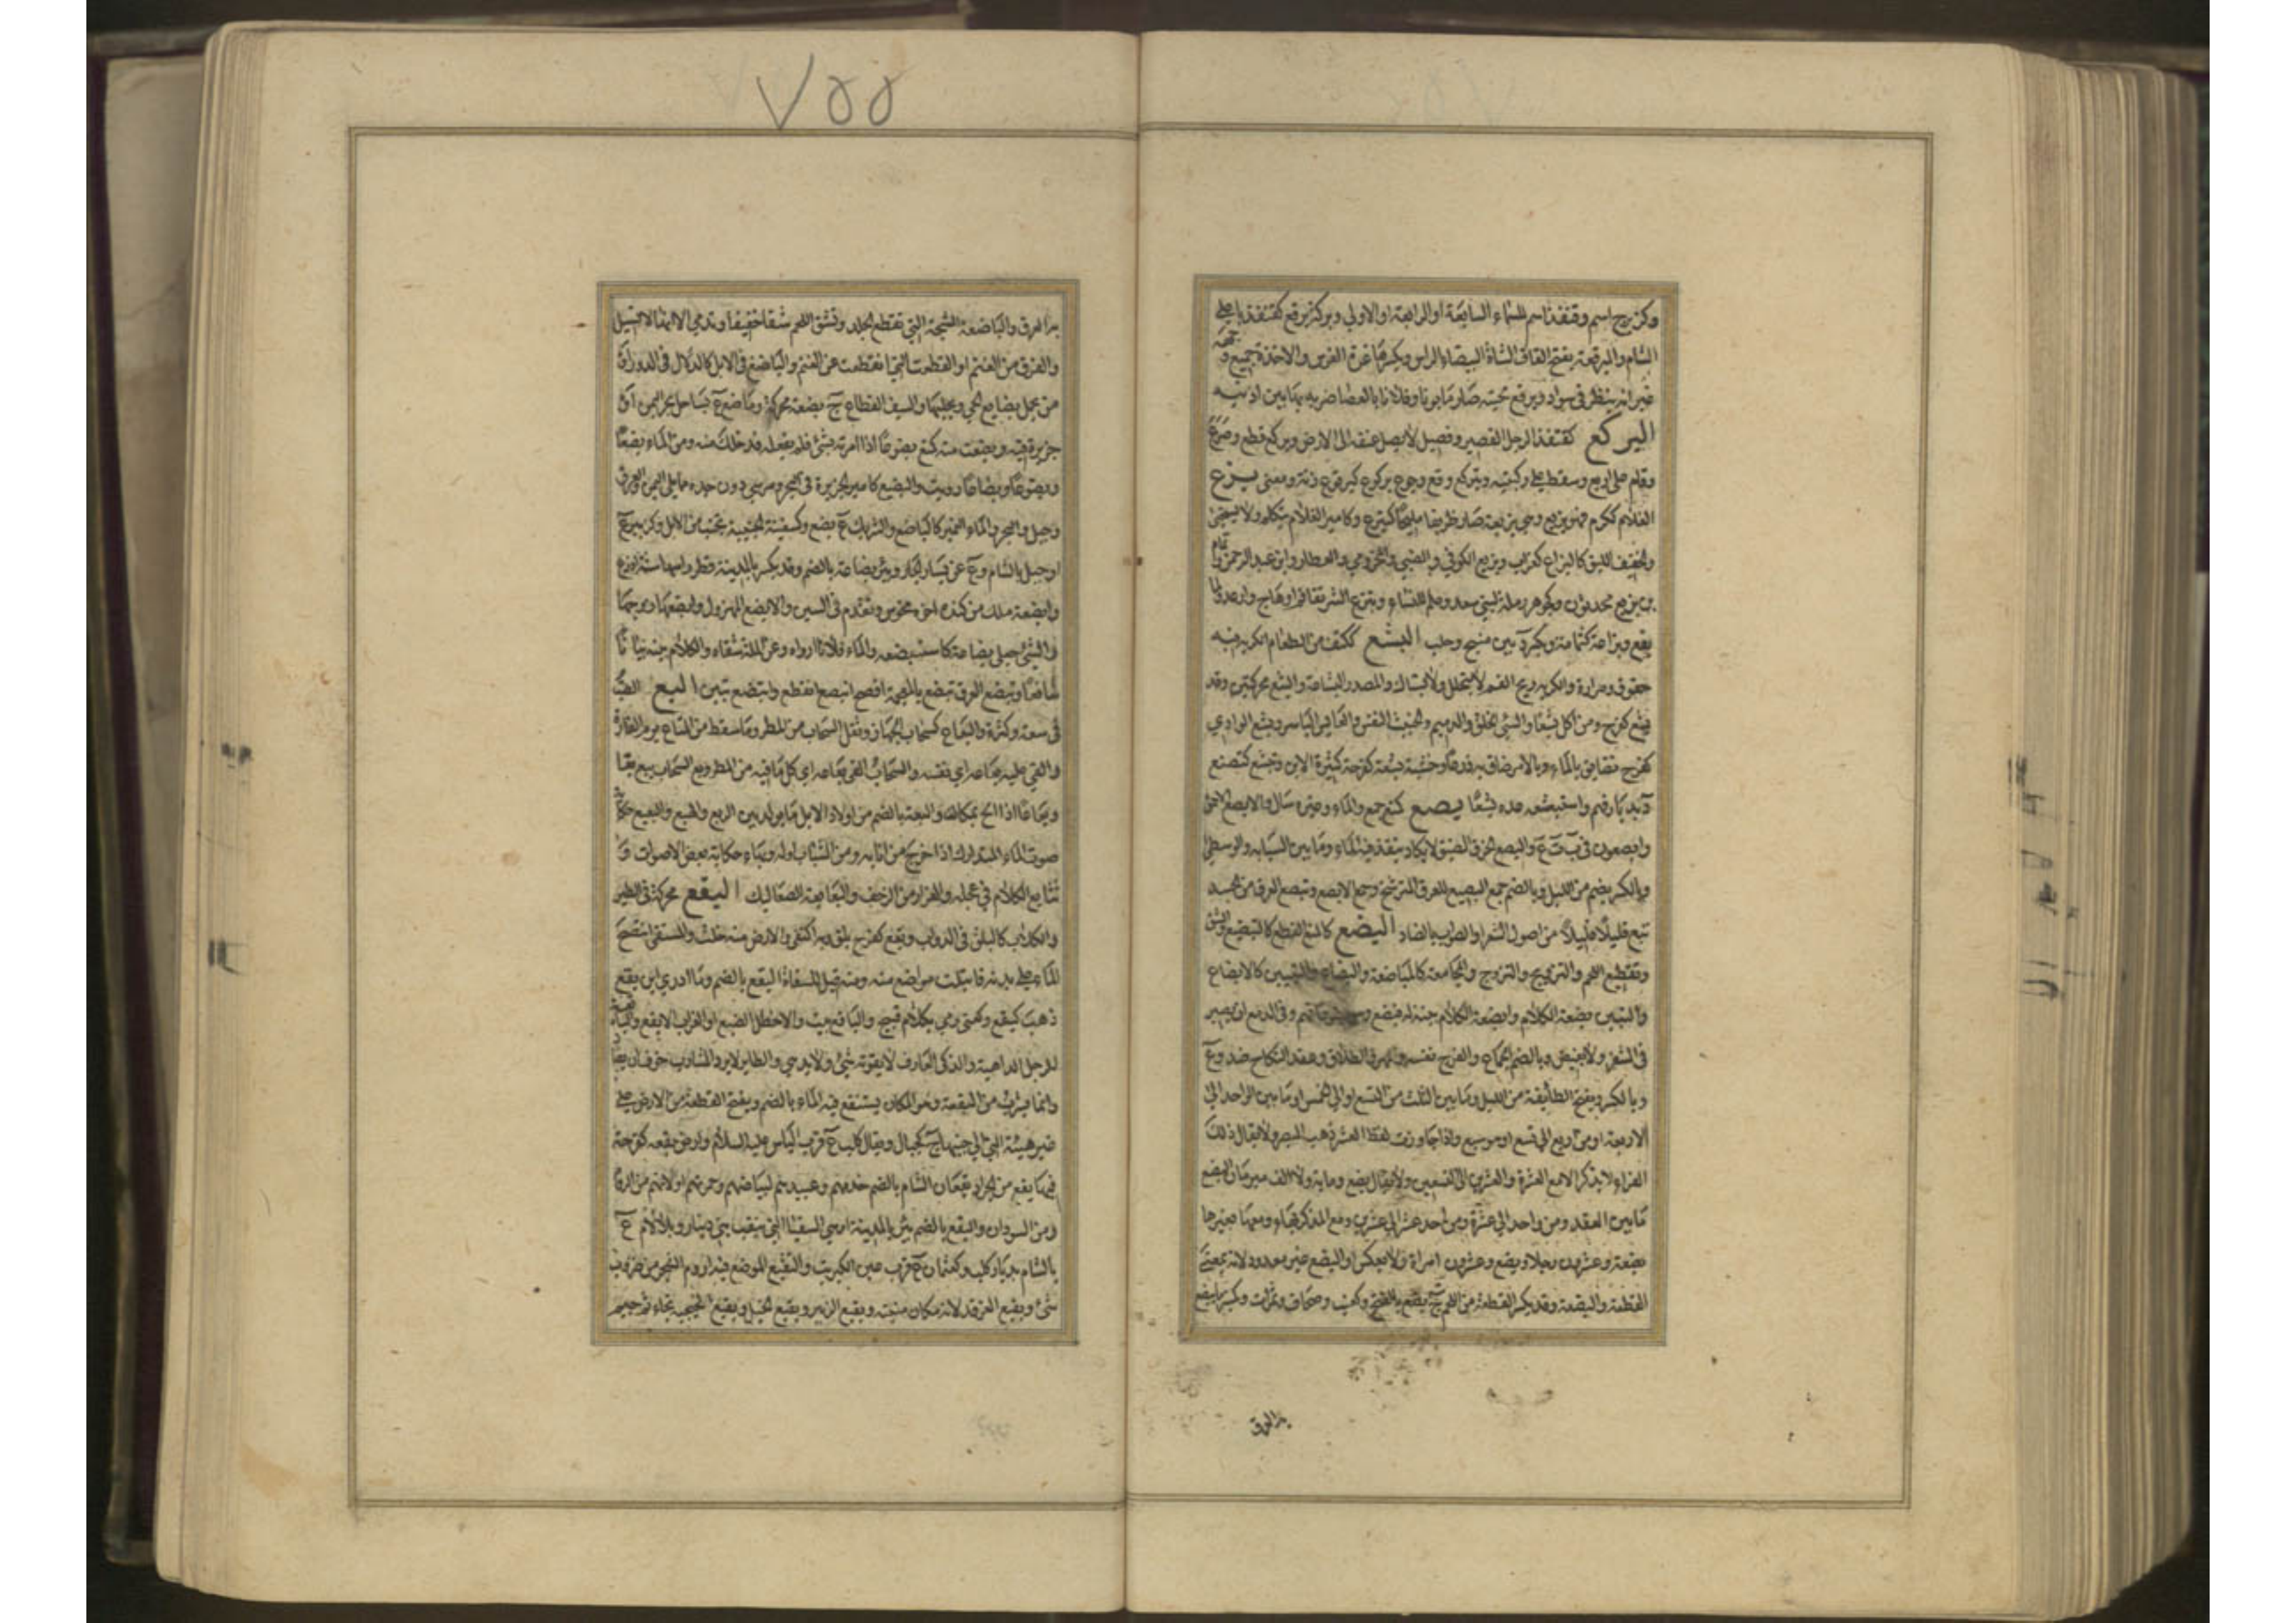 وكزبرج اسم وقنفذ اسم للسماء السابعة او الرابعة او الاولى وبركة برقع كقنفذ باعلى
الشام والبرقعة بفتح القاف الشاة البيضاء الراس وبكسرها غرة الفرس والاخذة جميع وجهه
غير انه ينظر فى سواد وبرقع لحيته صار مابونا وفلانا بالعصا ضربه بها بين اذنيه
البركع كقنفذ الرجل القصير وفصيل لا يصل عنقه الى الارض وبركع قطع وصرع
وقام على اربع وسقط على ركبتيه وتبركع وقع وجوع بركوع كبرقوع زنة ومعنى بزع
الغلام ككرم فهو بزيع وهي بزيعة صار ظريفا مليحا كتبزع وكامير الغلام يتكلم ولا يستحيى
والخفيف اللبق كالبزاع كغراب وبزيع الكوفي والضبي والمخزومي والعطار وابن عبد الرحمن وتمام
بن بزيع محدثون وكجوهر رملة لبني سعد وعلم للنساء وتبزع الشر تفاقم او هاج وارعد ولما
يقع وبزاعة كثمامة ويكسر د بين منبج وحلب البشع ككتف من الطعام الكريه فيه
حفوف ومرارة والكريه ريح الفم لا يتخلل ولا يستاك والمصدر البشاعة والبشع محركتين وقد
بشع كفرح ومن اكل بشعا والسيئ الخلق والدميم والخبيث النفس والعابس الباسر وبشع الوادي
كفرح تضايق بالماء وبالامر ضاق به ذرعا وخشبة بشعة كفرحة كثيرة الابن وتبشع كتصنع
د بديار فهم واستبشعه عده بشعا بصع كمنع جمع والماء وغيره سال والابصع الاحمق
وابصعون فى ب ت ع والبصع الخرق الضيق لا يكاد ينفذ فيه الماء وما بين السبابة والوسطى
وبالكسر بضع من الليل وبالضم جمع البصيع للعرق المترشح وجمع الابصع وتبصع العرق من الجسد
نبع قليلا قليلا من اصول الشعر او الصواب بالضاد البضع كالمنع القطع كالتبضيع والشق
وتقطيع اللحم والتزويج والتزوج والمجامعة كالمباضعة والبضاع والتبيين كالابضاع
والتبين بضعته الكلام وابضعته الكلام بينته له فبضع وفى الدمع ان يصير
فى الشفر ولا يفيض وبالضم الجماع والفرج نفسه والمهر والطلاق وعقد النكاح ضد وع
وبالكسر ويفتح الطائفة من الليل وما بين الثلث من التسع او الى الخمس او ما بين الواحد الى
الاربعة او من اربع الى تسع او هو سبع واذا جاوزت لفظ العشر ذهب البضع ولا يقال ذلك
الفراء لا يذكر الا مع العشرة والعشرين الى التسعين ولا يقال بضع ومائة ولا الف مبرمان البضع
ما بين العقدين من واحد الى عشرة ومن احد عشر الى عشرين ومع المذكر بهاء ومعها بغيرها
بضعة وعشرون رجلا وبضع وعشرون امراة ولا يعكس او البضع غير معدود لانه بمعنى
القطعة والبضعة وقد يكسر القطعة من اللحم ج بضع بالفتح وكعنب وصحاف وتمرات وكمنبر ما يبضع
به العرق
٧٥٥
به العرق والباضعة الشجة التي تقطع الجلد وتشق اللحم شقا خفيفا وتدمي الا انها لا تسيل
والفرق من الغنم او القطعة التي انقطعت عن الغنم والباضع فى الابل كالدلال فى الدور او
من يحمل بضايع الحي ويجلبها والسيف القطاع ج بضعة محركة وباضع ع بساحل بحر اليمن او
جزيرة فيه وبضعت منه كمنع بضوعا اذا امرته بشئ فلم يفعله فدخلك منه ومن الماء بضعا
وبضوعا وبضاعا رويت والبضيع كامير الجزيرة فى البحر ومرسى دون جدة مما يلي اليمن والعرق
وجبل والبحر والماء النمير كالباضع والشريك ج بضع وكسفينة الجنيبة تجنب من الابل وكزبير ع
او جبل بالشام وع عن يسار الجار وبئر بضاعة بالضم وقد يكسر بالمدينة قطر راسها ستة اذرع
وابضعة ملك من كندة اخو مخوس وتقدم فى السين والابضع المهزول وابضعها زوجها
والشئ جعله بضاعة كاستبضعه والماء فلانا ارواه وعن المسئلة شفاه والكلام بينه بيانا
شافيا وتبضع العرق تبصع بالمهملة افصح انبضع انقطع وابتضع تبين البع الصب
فى سعة وكثرة والبعاع كسحاب الجهاز وثقل السحاب من المطر وما سقط من المتاع يوم الغارة
والقى عليه بعاعه اي نفسه والسحاب القى بعاعه اي كل ما فيه من المطر وبع السحاب يبع بعا
وبعاعا اذا الح بمكان والبعة بالضم من اولاد الابل ما يولد بين الربع والهبع والبعبع حكاية
صوت الماء المتدارك اذا خرج من انائه ومن الشباب اوله وبهاء حكاية بعض الاصوات و
تتابع الكلام فى عجلة والفرار من الزحف والبعابعة الصعاليك البقع محركة فى الطير
والكلاب كالبلق فى الدواب وبقع كفرح بلق وبه اكتفى والارض منه خلت والمستقى انتضح
الماء على بدنه فابتلت مواضع منه ومنه قيل للسقاة البقع بالضم وما ادري اين بقع
ذهب كبقع وكعنى رمي بكلام قبيح
للرجل الداهية والذكى العارف لا يفوته شئ ولا يدهى والطاير لا يرد المشارب خوف ان يصاد
وانما يشرب من البقعة وهى المكان يستنقع فيه الماء بالضم ويفتح القطعة من الارض على
غير هيئة التي الى جنبها ج كجبال وبقال كلب ع قرب الياس عليه السلام وارض بقعة كفرحة
فيها بقع من الجراد وبقعان الشام بالضم خدمهم وعبيدهم لبياضهم وحمرتهم او لانهم من الروم
ومن السودان والبقع بالضم بئر بالمدينة او هي السقيا التي بنقب بني دينار وبلا لام ع
بالشام بديار كلب وكعثمان ع قرب عين الكبريت والبقيع الموضع فيه اروم الشجر من ضروب
شتى وبقيع الغرقد لانه كان منبته وبقيع الزبير وبقيع الخيل وبقيع الخبجبة بخاء ثم جيم